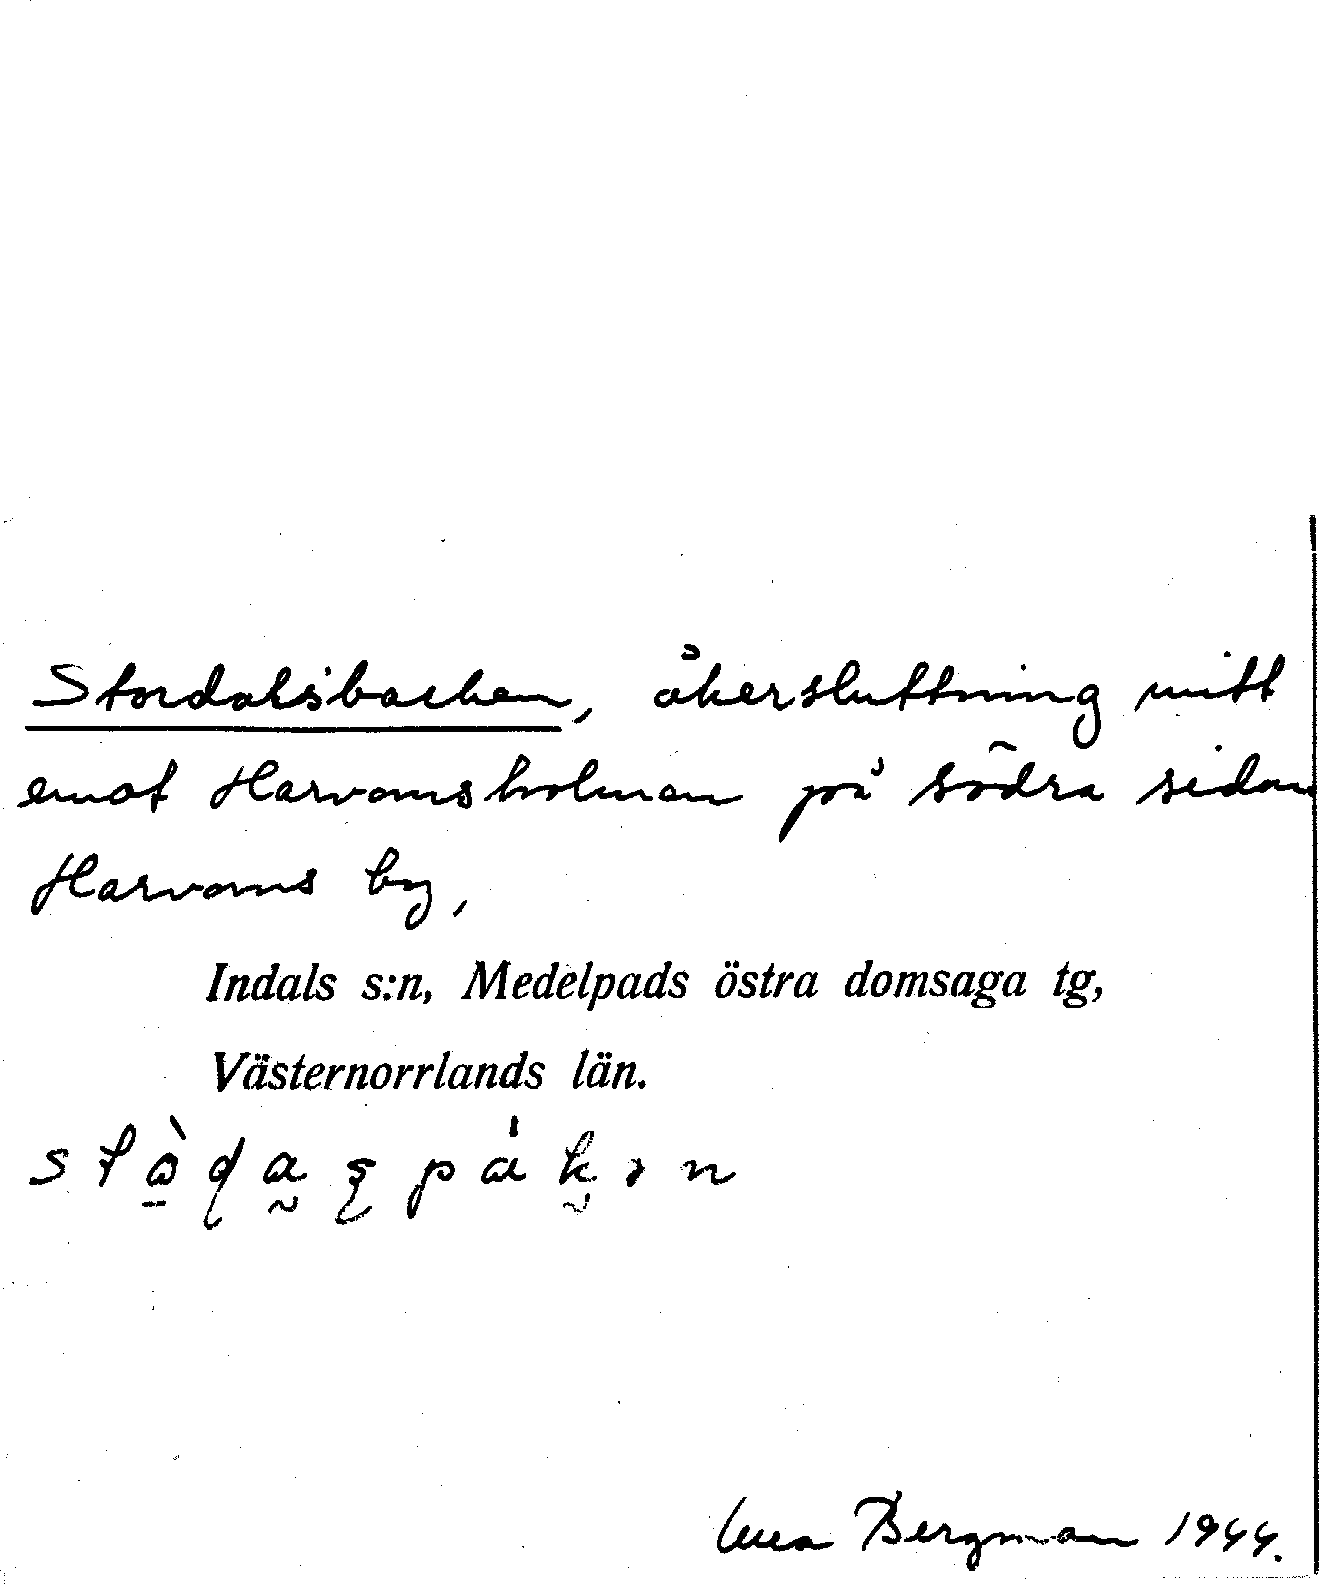 Stordalsbacken, åkersluttning mitt
emot Harvomsholmen på södra sidan
Harvoms by,
Indals s:n, Medelpads östra domsaga tg,
Västernorrlands län.
Bergman 1944.